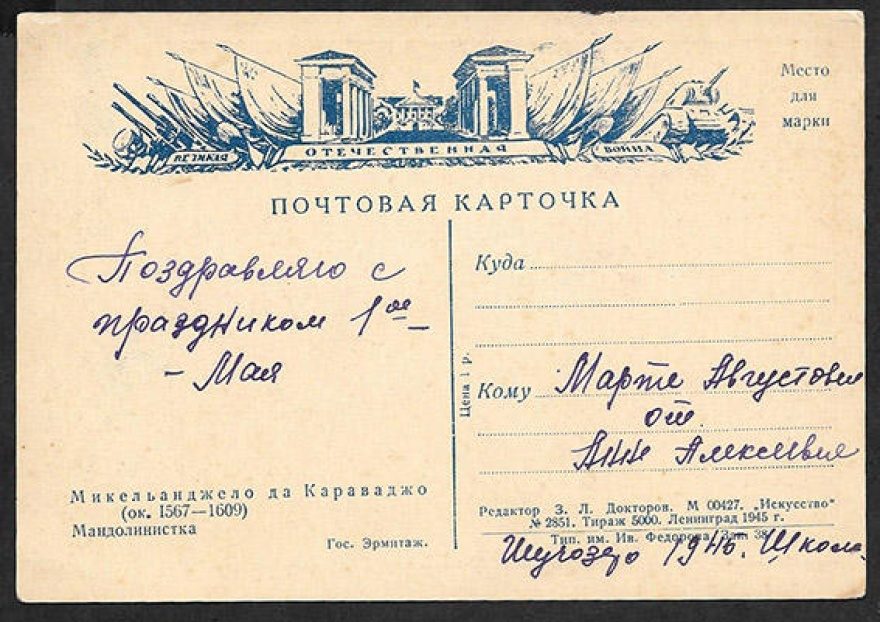 ВЕЛИКАЯ ОТЕЧЕСТВЕННАЯ ВОЙНА
Место
для
марки
ПОЧТОВАЯ КАРТОЧКА
Поздравляю с
праздником 1ое
- Мая
Микельанджело да Караваджо
(ок. 1567—1609)
Мандолинистка
Гос. Эрмитаж.
Цена 1 р.
Куда
Кому Марте Августовне
от
Анны Алексеевны
Редактор З. Л. Докторов. М 00427. „Искусство“
№ 2851. Тираж 5000. Ленинград 1945 г.
Тип. им. Ив. Федорова. Зак. 38
Шугозеро 1946. Школа.